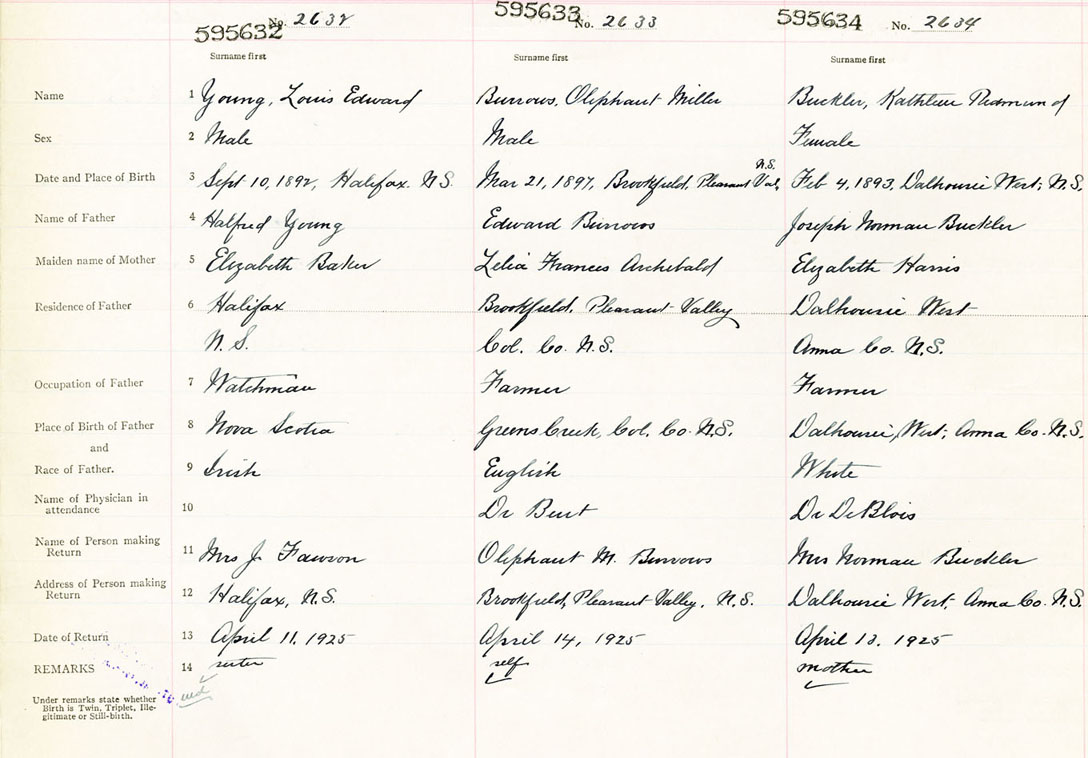 595632 No. 2632 595633 No. 2633 595634 No. 2634
Surname first Surname first Surname first
Name 1 Young, Louis Edward Burrows, Oliphant Miller Buckler, Kathleen
Sex 2 Male Male Female
N.S.
Date and Place of Birth 3 Sept 10, 1892, Halifax. N.S. Mar 21, 1897, Brookfield, Pleasant Val, Feb 4, 1893, Dalhousie West, N.S.
Name of Father 4 Halfred Young Edward Burrows Joseph Norman Buckler
Maiden name of Mother 5 Elizabeth Baker Lelia Frances Archibald Elizabeth Harris
Residence of Father 6 Halifax Brookfield, Pleasant Valley Dalhousie West
N.S. Col. Co. N.S. Anna Co. N.S.
Occupation of Father 7 Watchman Farmer Farmer
Place of Birth of Father 8 Nova Scotia Greens Creek, Col. Co. N.S. Dalhousie, West, Anna Co. N.S.
and
Race of Father. 9 Irish English White
Name of Physician in
attendance 10 Dr Bent Dr DeBlois
Name of Person making
Return 11 Mrs J. Fawson Oliphant M. Burrows Mrs Norman Buckler
Address of Person making
Return 12 Halifax, N.S. Brookfield, Pleasant Valley, N.S. Dalhousie West, Anna Co. N.S.
Date of Return 13 April 11, 1925 April 14, 1925 April 13, 1925
REMARKS 14 sister self mother
Under remarks state whether
Birth is Twin, Triplet, Ille-
gitimate or Still-birth.